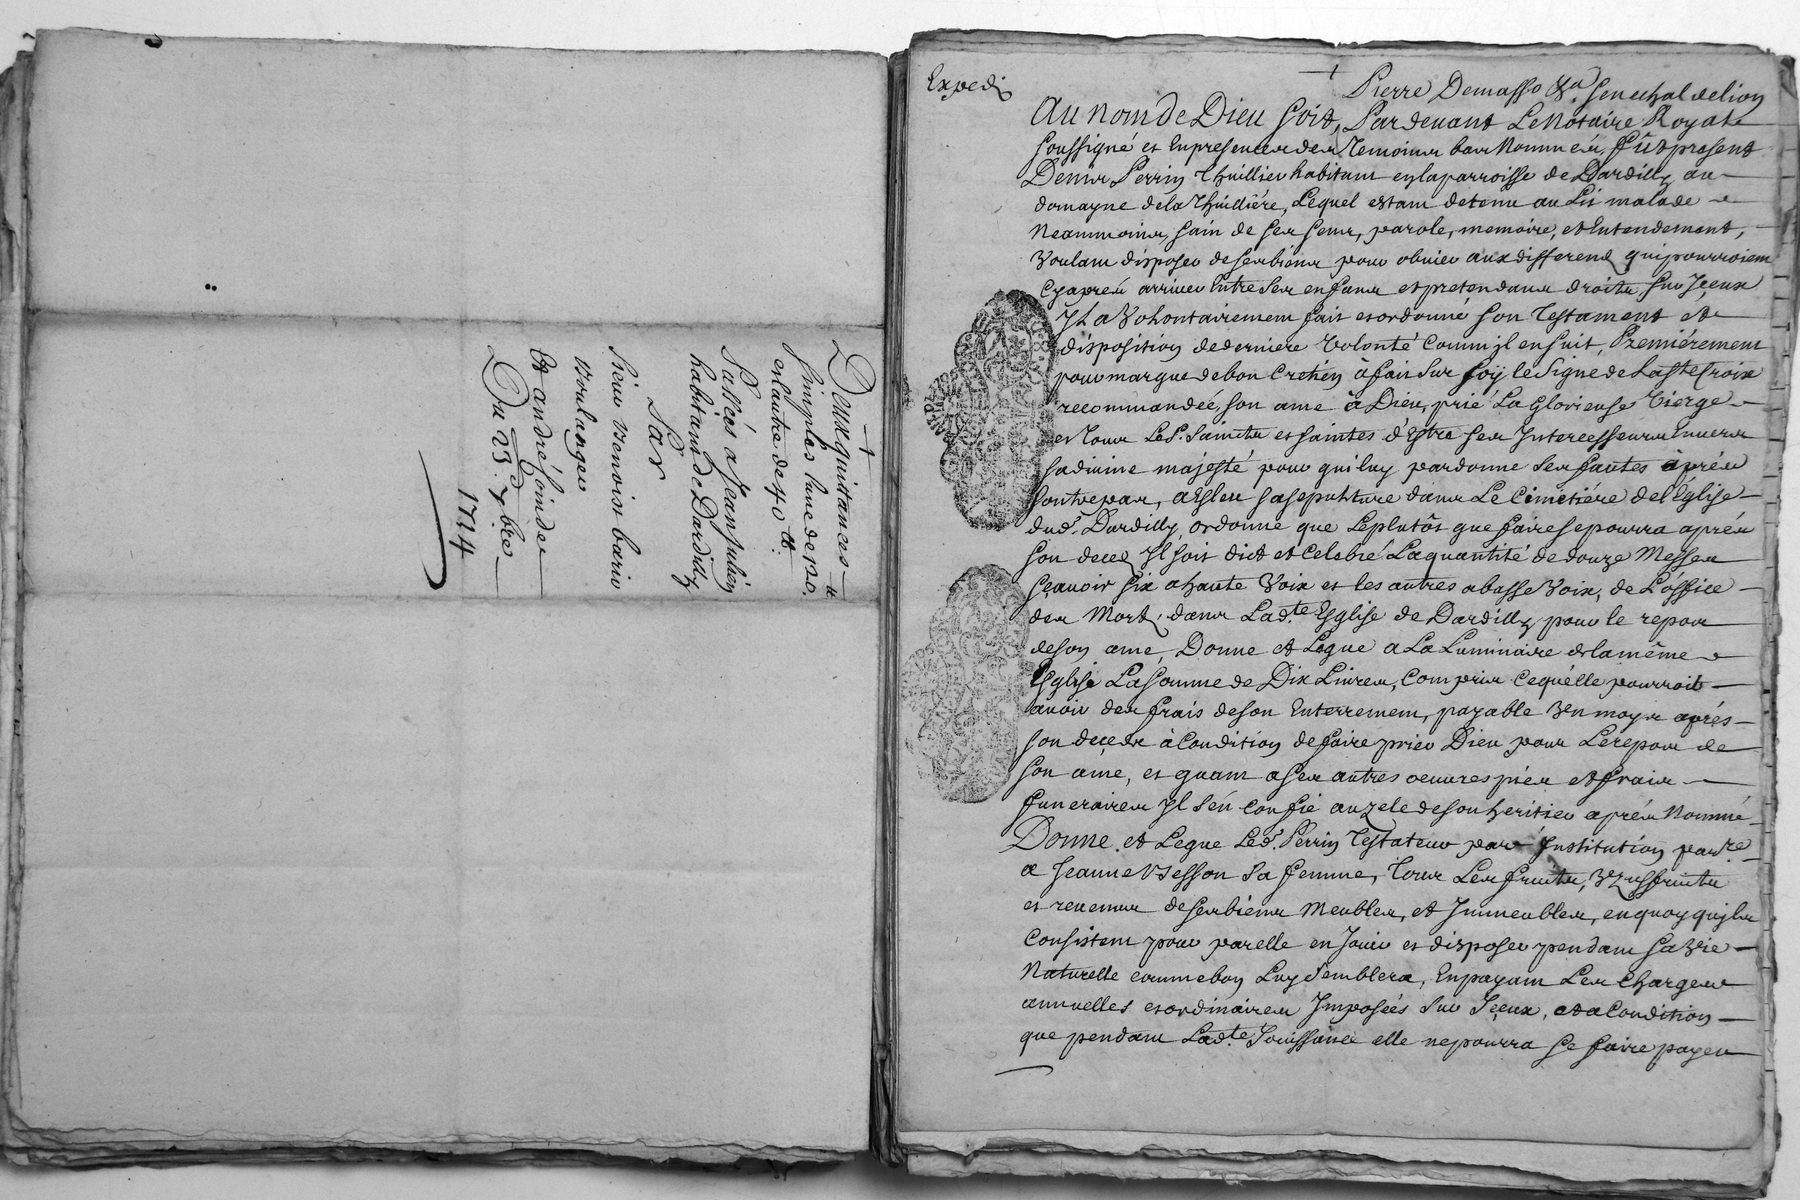 Deux quittances
simples lune de 120.tt
et lautre de 40 tt.
Passées a Jean Julien
habitant de Dardilly
Par
Sieur Benoist bario
Boulanger
Et andré Soinder
Du 23.e 7bre
1714
Expedié
Pierre Demasso Sg.r senechal de lion
Au nom de Dieu soit, Pardevant Le Notaire Royal
soussigné et En presences des Temoins bas Nommés, fût présent
Denis Perrin Thuillier habitant en la parroisse de Dardilly au
domayne de la Thuillière, Lequel estant detenu au Lit malade
Neanmoins sain de ses sens, parole, memoire, et Entendement,
Voulant disposer de ses biens pour obvier aux differens qui pourroient
Cy aprés arriver Entre ses enfans et pretendans droits, sur Iceux
Il a Volontairement fait et ordonné son Testament et
disposition de derniere Volonté comm'il en suit, Premiérement
pour marque de bon Cretien à fait sur soÿ le Signe de La S.te Croix
recommandée son ame à Dieu, prié La Glorieuse Vierge
et Tous Les S. Saints et saintes d'Estre ses Intercesseurs Envers
sa divine majesté pour qui luy pardonne ses fautes àprés
sontrepas, a Esleu sa sepulsture dans Le Cimetiére de l'Église
dud.t Dardilly, ordonne que Le plutôt que faire se pourra aprés
son deces Il soit dict et Celebré La quantité de douze Messes
sçavoir six a haute Voix et les autres a basse Voix, de L'office
des Morts, dans Lad.te Esglise de Dardilly pour le repos
de son ame, Donne et Legue a La Luminaire de la même
Esglise La somme de Dix Livres, Compris ce qu'elle pourroit
avoir des frais de son Enterrement, payable Six moys aprés
son deçeds à Condition de faire prier Dieu pour Le repos de
son ame, et quant a ses autres oeuvres pies et frais
funeraires Il s'én confie au zele de son heritier aprés Nommé
Donne et Legue Led.t Perrin Testateur par Institution part.re
a Jeanne Besson sa femme, Tous Les fruits, Usuffruits
et revenus de ses biens Meubles, et Immeubles, en quoy qu'ils
Consistent pour par elle en Jouir et disposer pendant sa vie
Naturelle comme bon Luy Semblera, En payant Les Charges
annuelles et ordinaires Imposées sur Iceux, et a Condition
que pendant Lad.te Jouissance elle ne pourra se faire payer